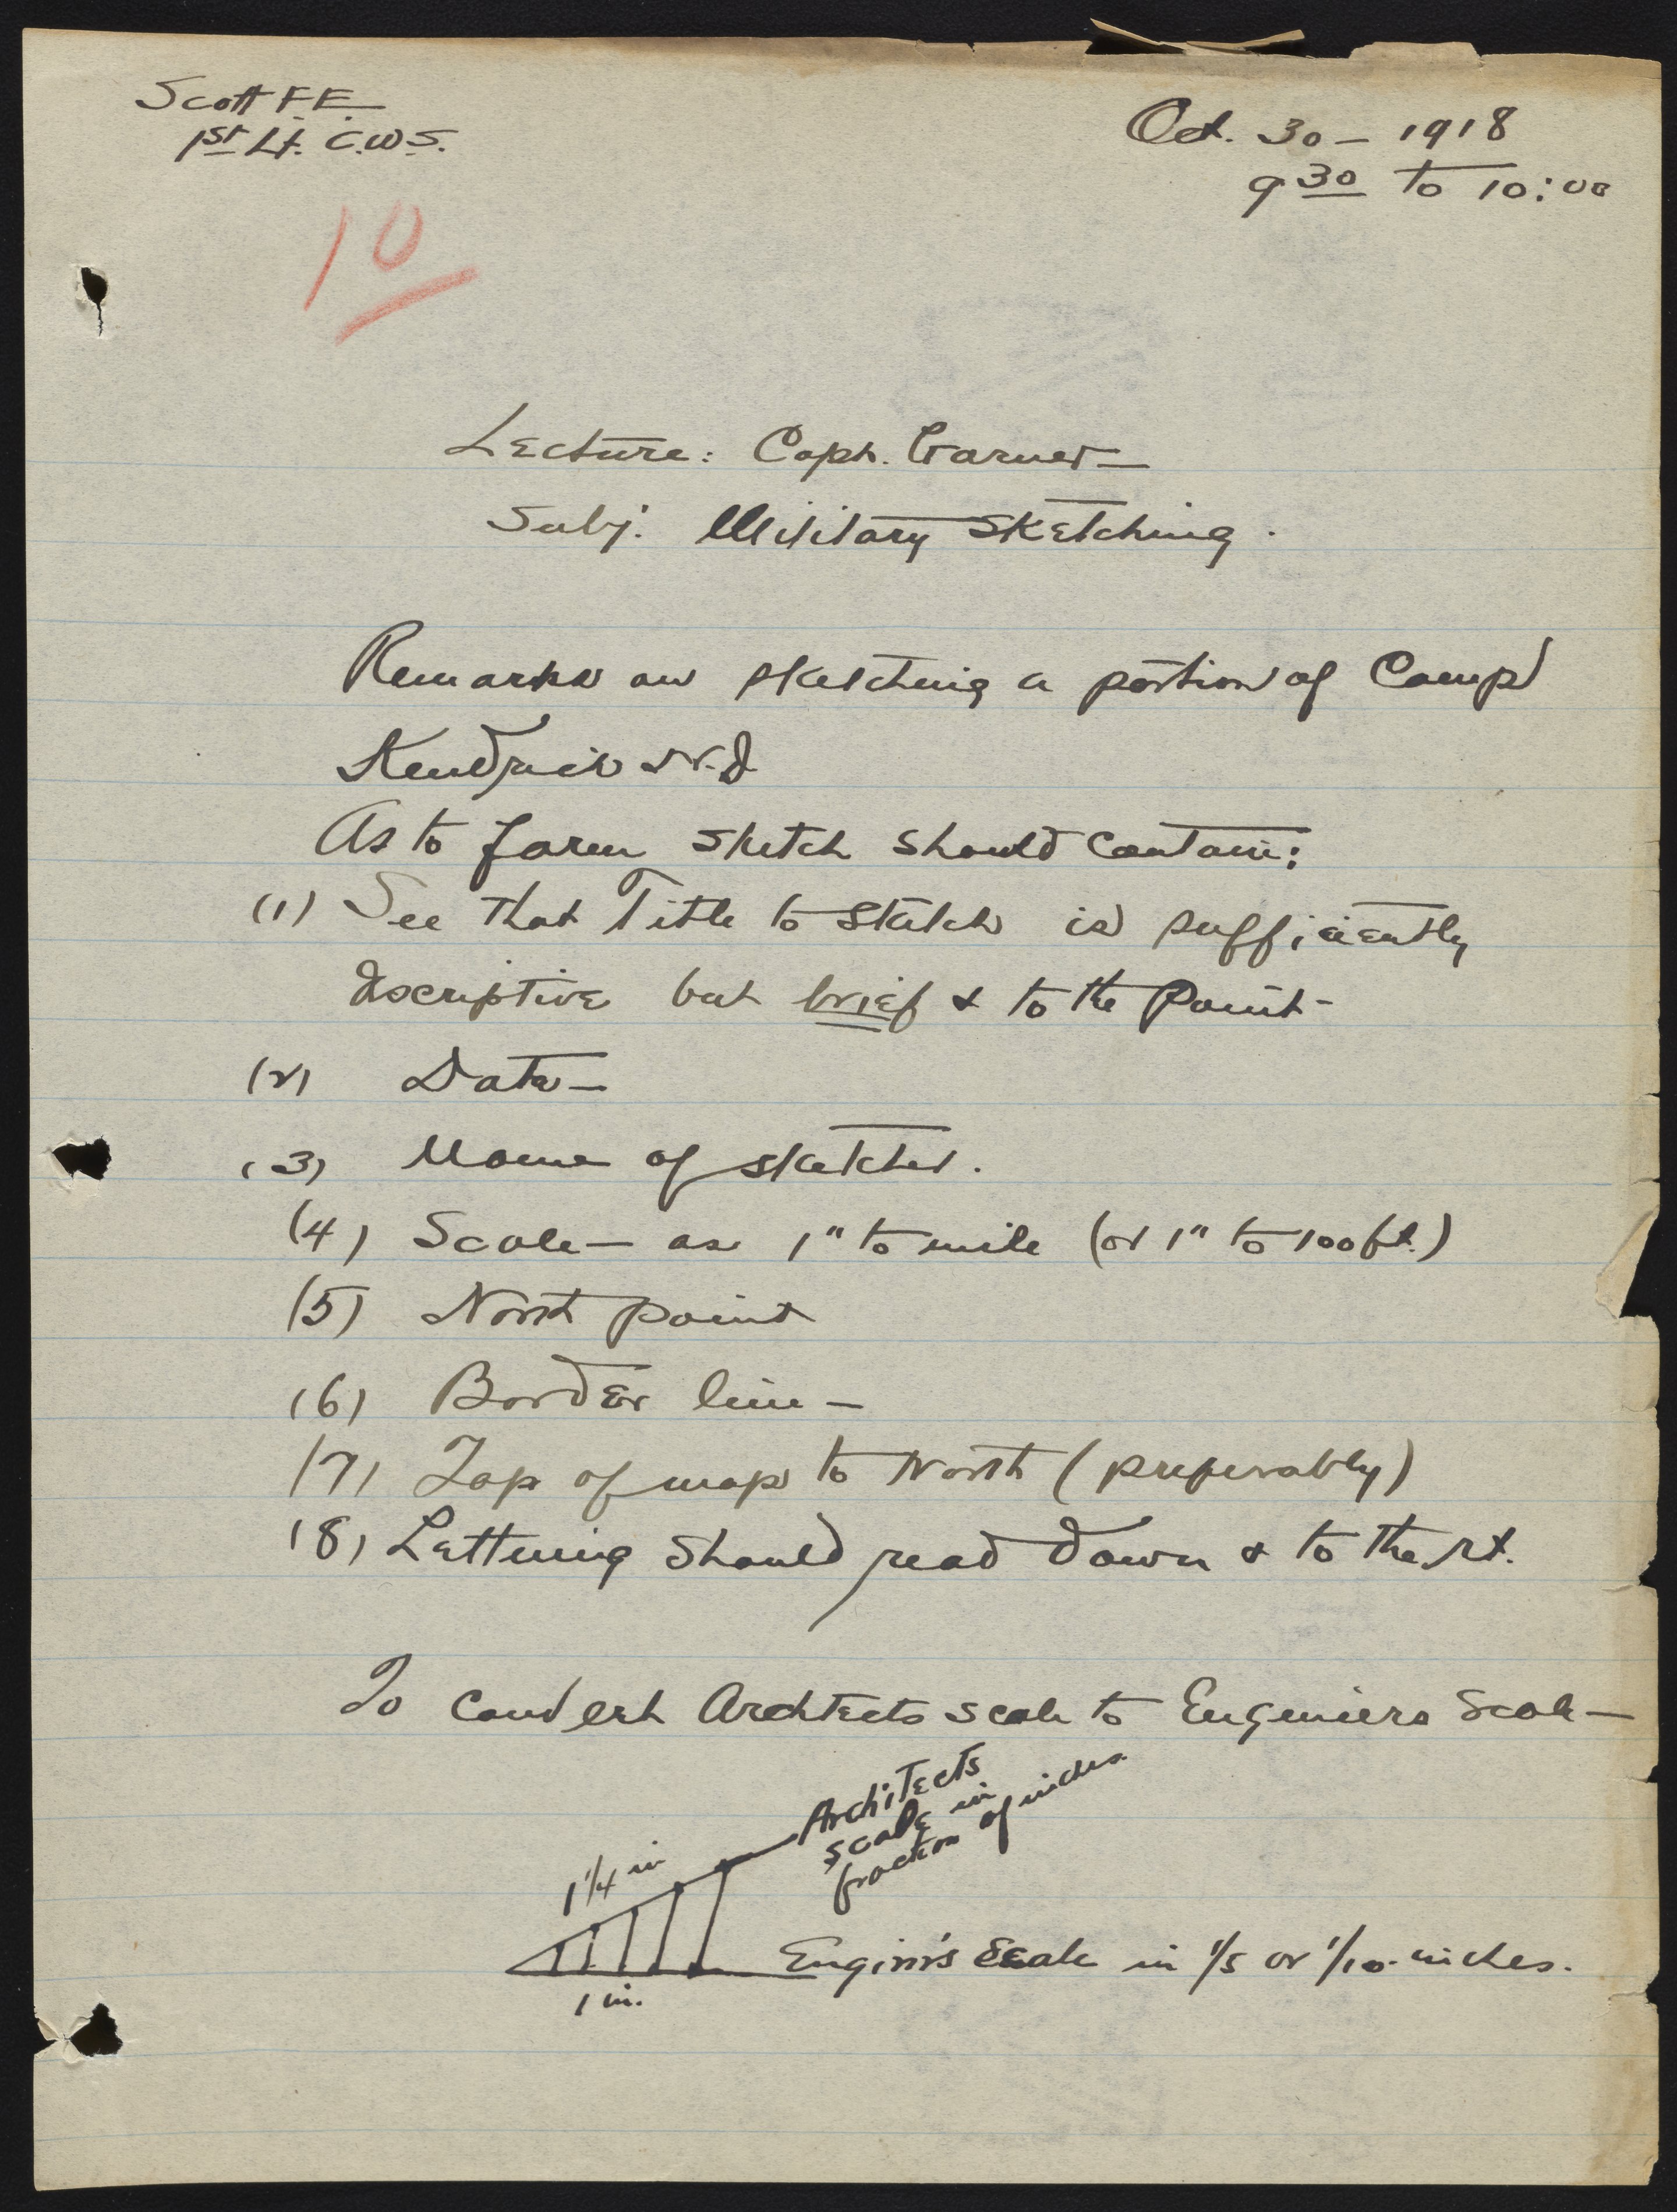 Scott F.E.
1st Lt. C.W.S.
Oct. 30 - 1918
9 30 to 10:00
10
Lecture: Capt. Garner -
Subj: Military Sketching.
Remarks on sketching a portion of Camp
Kendrick N.J.
As to form sketch should contain:
(1) See that Title to sketch is sufficiently
descriptive but brief & to the point -
(2) Date -
(3) Name of sketcher.
(4) Scale - as 1" to mile (or 1" to 100 ft.)
(5) North point
(6) Border line -
(7) Top of map to North (preferably)
(8) Lettering should read down & to the rt.
To convert Architects scale to Engineers Scale -
Architects
scale in
fraction of inches.
1 1/4 in
Engin'rs Scale in 1/5 or 1/10 inches.
1 in.